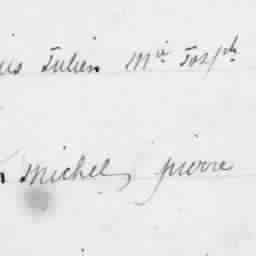 Julien Mie Josph
Michel, pierre